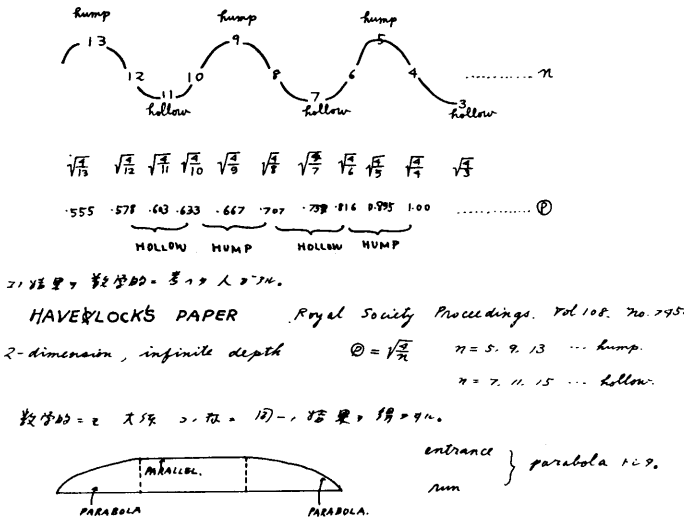 hump hump hump
13 9 5
12 10 8 6 4 ........... n
11 7 3
hollow hollow hollow
√4/13 √4/12 √4/11 √4/10 √4/9 √4/8 √4/7 √4/6 √4/5 √4/4 √4/3
.555 .578 .603 .633 .667 .707 .758 .816 0.895 1.00 ........... Ⓟ
HOLLOW HUMP HOLLOW HUMP
コノ結果ヲ数学的ニ考ヘタ人ガアル。
HAVELOCK'S PAPER Royal Society Proceedings. Vol 108. no. 795.
2-dimension, infinite depth Ⓟ = √4/n n = 5. 9. 13 ... hump.
n = 7. 11. 15 ... hollow.
数学的ニモ大体 同一ノ結果ヲ得タル。
PARALLEL.
entrance
run
parabola トシタ。
PARABOLA PARABOLA.